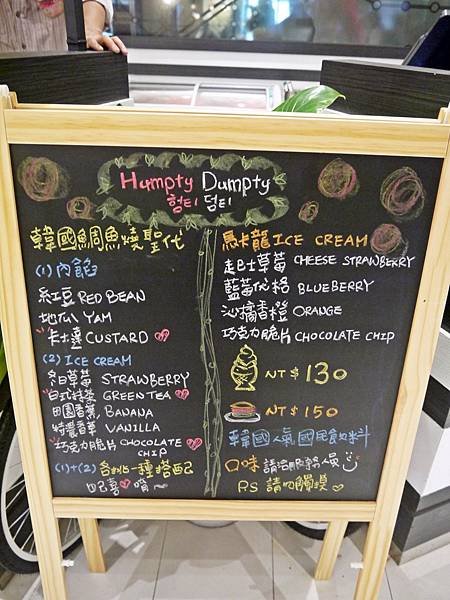 Humpty Dumpty
험티 덤티
韓國鯛魚燒聖代
(1) 內餡
紅豆 RED BEAN
地瓜 YAM
卡士達 CUSTARD
(2) ICE CREAM
草莓 STRAWBERRY
日式抹茶 GREEN TEA
田園香蕉 BANANA
特濃香草 VANILLA
巧克力脆片 CHOCOLATE CHIP
(1)+(2) 各挑一種搭配
自己喜唷~
馬卡龍 ICE CREAM
起士草莓 CHEESE STRAWBERRY
藍莓优格 BLUEBERRY
沁橘香橙 ORANGE
巧克力脆片 CHOCOLATE CHIP
NT $ 130
NT $ 150
韓國人氣國民飲料
口味請洽服務人員
P.S 請勿觸摸